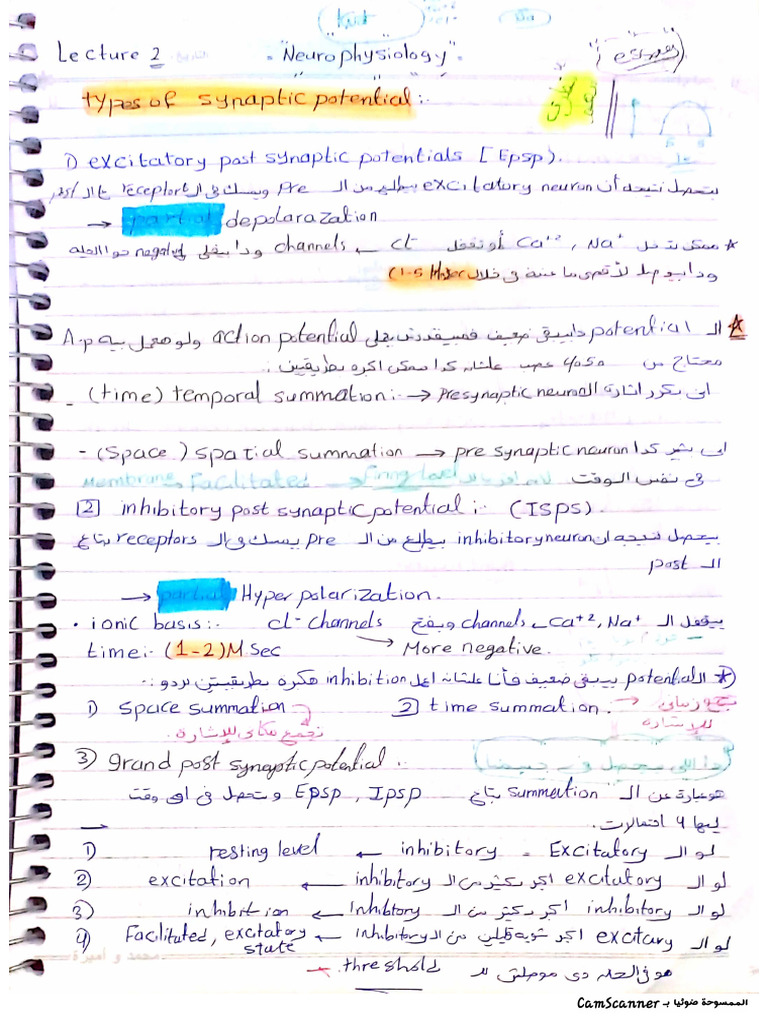 Lecture 2
"Neurophysiology"
types of synaptic potential :-
1) excitatory post synaptic potentials [Epsp).
بتحصل نتيجه أن excitatory neuron بيطلع من الـ Pre ويمسك في الـ receptor بتاع الـ
→ partial depolarazation
* ممكن تدخل Ca+2 , Na+ أو تقفل Cl- channels ودا يبقى negative جوا الخليه
(1-5 M
* الـ potential دا بيبقى ضعيف فمش بيقدر يخلي action potential ولو هعمل بيه A.p
محتاج من 40 50 عشان كدا ممكن اكبره بطريقتين :
- (time) temporal summation :- → Presynaptic neuron اني بكرر اثارة الـ
- (Space) spatial summation → pre synaptic neuron اني بثير كذا
في نفس الوقت
Membrane Facilitated → Firing level
2 inhibitory post synaptic potential :- (ISPS).
بيحصل نتيجه ان inhibitory neuron بيطلع من الـ pre يمسك في الـ receptors بتاع
الـ post
→ partial Hyper polarization.
• ionic basis :- Cl- channels بيقفل الـ Ca+2, Na+ channels ويفتح
time :- (1-2)M Sec → More negative.
* الـ potential بيبقى ضعيف فأنا علشان اعمل inhibition هكبره بطريقتين بردو :-
1) Space summation 2 time summation. → تجمع زماني
للإشارة
تجمع مكاني للإشارة.
3) grand post synaptic potential .
هو عبارة عن الـ summation بتاع Epsp , Ipsp وتحصل في اي وقت
ليها 4 احتمالات.
1) لو الـ Excitatory = inhibitory ← resting level
2) لو الـ excitatory اكبر بكثير من الـ inhibitory ← excitation
3) لو الـ inhibitory اكبر بكثير من الـ Inhibtory ← inhibition
4) لو الـ excitary اكبر شويه قليلين من الـ inhibitory ← Facilitated, excitatory
state
هو في الحاله دي موصلش لـ threshold
محمد و اميرة
الممسوحة ضوئيا بـ CamScanner